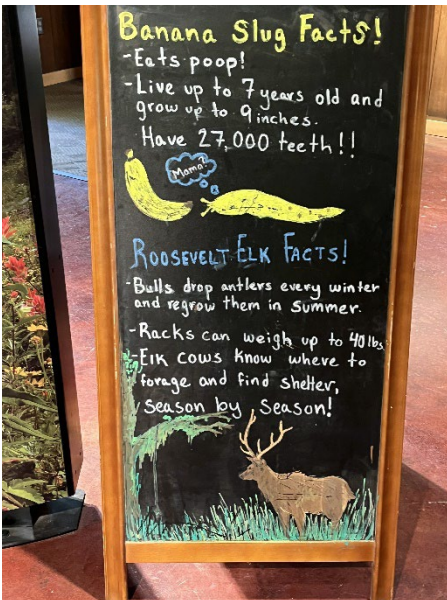 Banana Slug Facts!
-Eats poop!
-Live up to 7 years old and
grow up to 9 inches.
Have 27,000 teeth!!
Mama?
ROOSEVELT ELK FACTS!
-Bulls drop antlers every winter
and regrow them in summer.
-Racks can weigh up to 40lbs
-Elk cows know where to
forage and find shelter,
season by season!